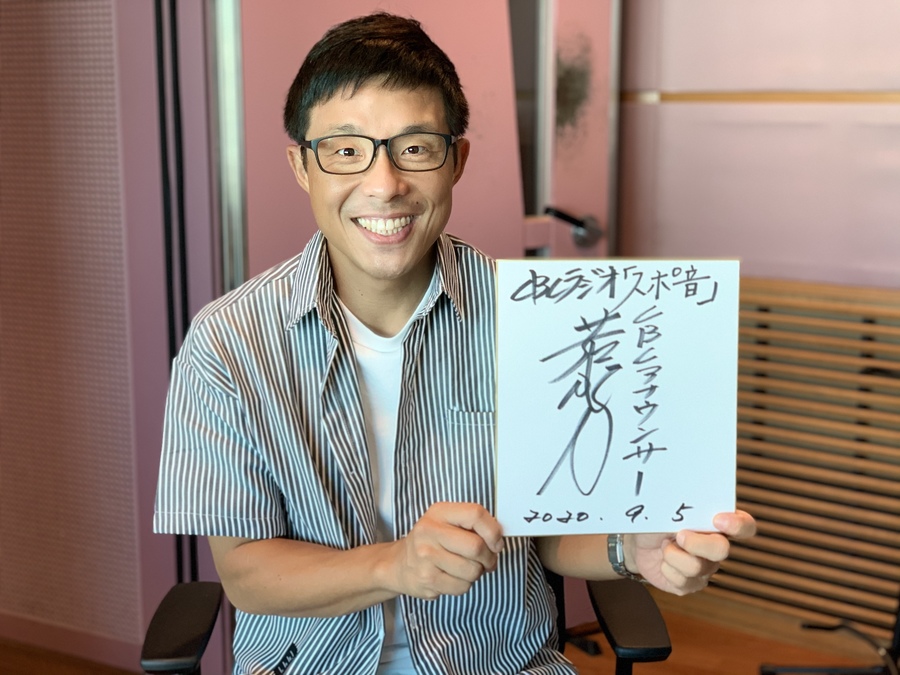 CBCラジオ「スポ音」
CBCアナウンサー
2020.9.5